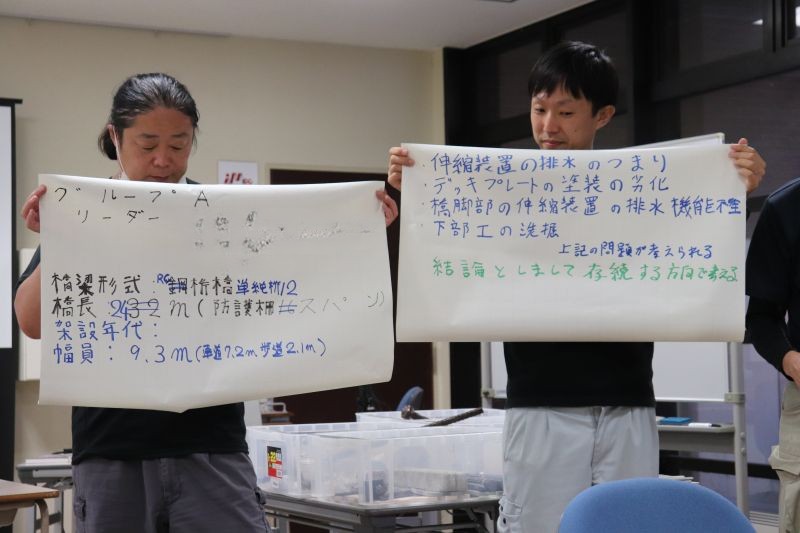 グループA
リーダー
橋梁形式:RC桁橋単純桁12
橋長:243m(防護柵 スパン)
架設年代:
幅員:9.3m(車道7.2m歩道2.1m)
・伸縮装置の排水のつまり
・デッキプレートの塗装の劣化
・橋脚部の伸縮装置の排水機能不全
・下部工の洗掘
上記の問題が考えられる
結論としまして存続する方向で考える